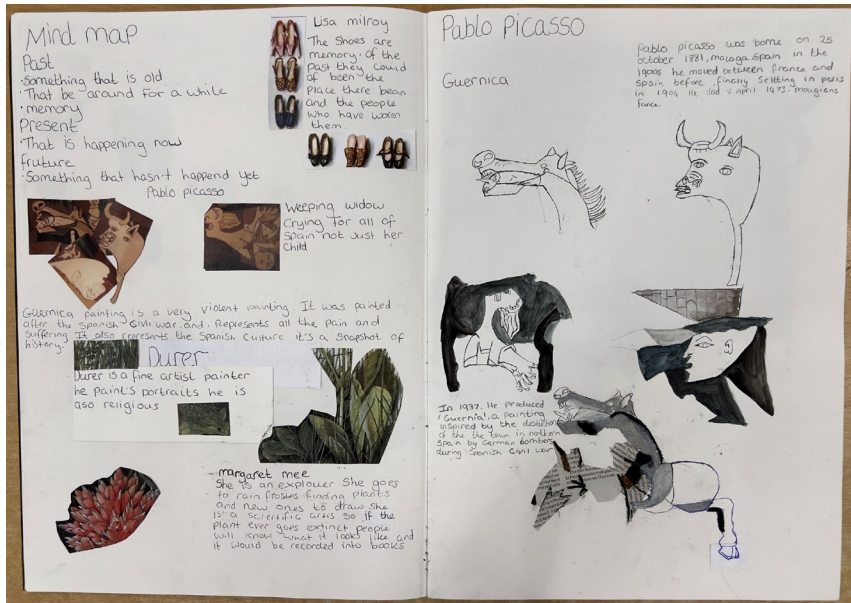 Mind map
Past
·Something that is old
·That be around for a while
·memory
Present
·That is happening now
fruture
·Something that hasn't happend yet
Lisa milroy
The Shoes are
memory of the
past they could
of been the
place there bean
and the people
who have woren
them.
Pablo picasso
Weeping widow
Crying for all of
Spain not Just her
Child
Guernica painting is a very violent painting. It was painted
after the Spanish Civil war and. Represents all the pain and
suffering It also represents the Spanish Culture it's a snapshot of
history.
Durer
Durer is a fine artist painter
he paint's portraits he is
aso religious
margaret mee
She is an explouer She goes
to rain frostes finding plants
and new ones to draw she
is a scientific artis so if the
plant ever goes extinct people
will know what it looks like and
it would be recorded into books
Pablo Picasso
Guernica
Pablo picasso was borne on 25
october 1881, malaga, Spain in the
1900s he moved between france and
Spain before finally settling in peris
in 1904 He 8 April 1973.
france
In 1937. He produced
'Guernia', a painting
inspired by the
of the the town in northern
Spain by German bombers
during Spanish Civil war